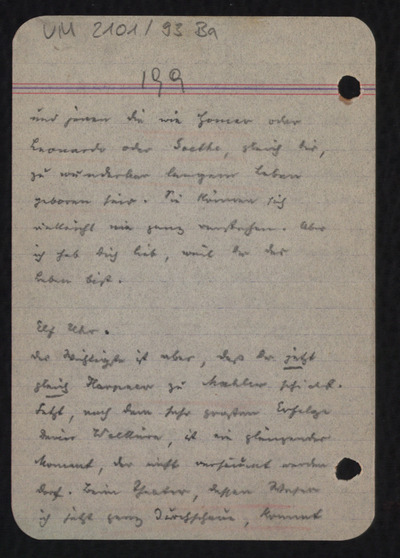 VM 2101/93 Ba
199
und jenen die wie Homer oder
Leonardo oder Goethe, gleich Dir,
zu wunderbar langem Leben
geboren sind. Sie können sich
vielleicht nie ganz verstehen. Aber
ich hab Dich lieb, weil Du das
Leben bist.
Elf Uhr.
Das Wichtigste ist aber, daß Du jetzt
gleich zu Mahler schickst.
Jetzt, nach dem sehr großen Erfolge
Deiner Walküre, ist ein glänzender
Moment, der nicht versäumt werden
darf. Beim Theater, dessen Wesen
ich jetzt ganz durchschaue, kommt